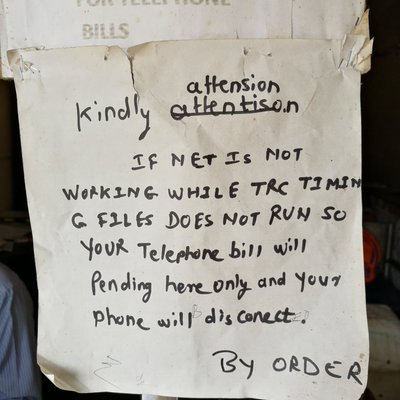 FOR TELEPHONE
BILLS
attension
kindly attentison
IF NET IS NOT
WORKING WHILE TRC TIMIN
G FILES DOES NOT RUN SO
YOUR Telephone bill will
Pending here only and your
phone will disconect.
BY ORDER